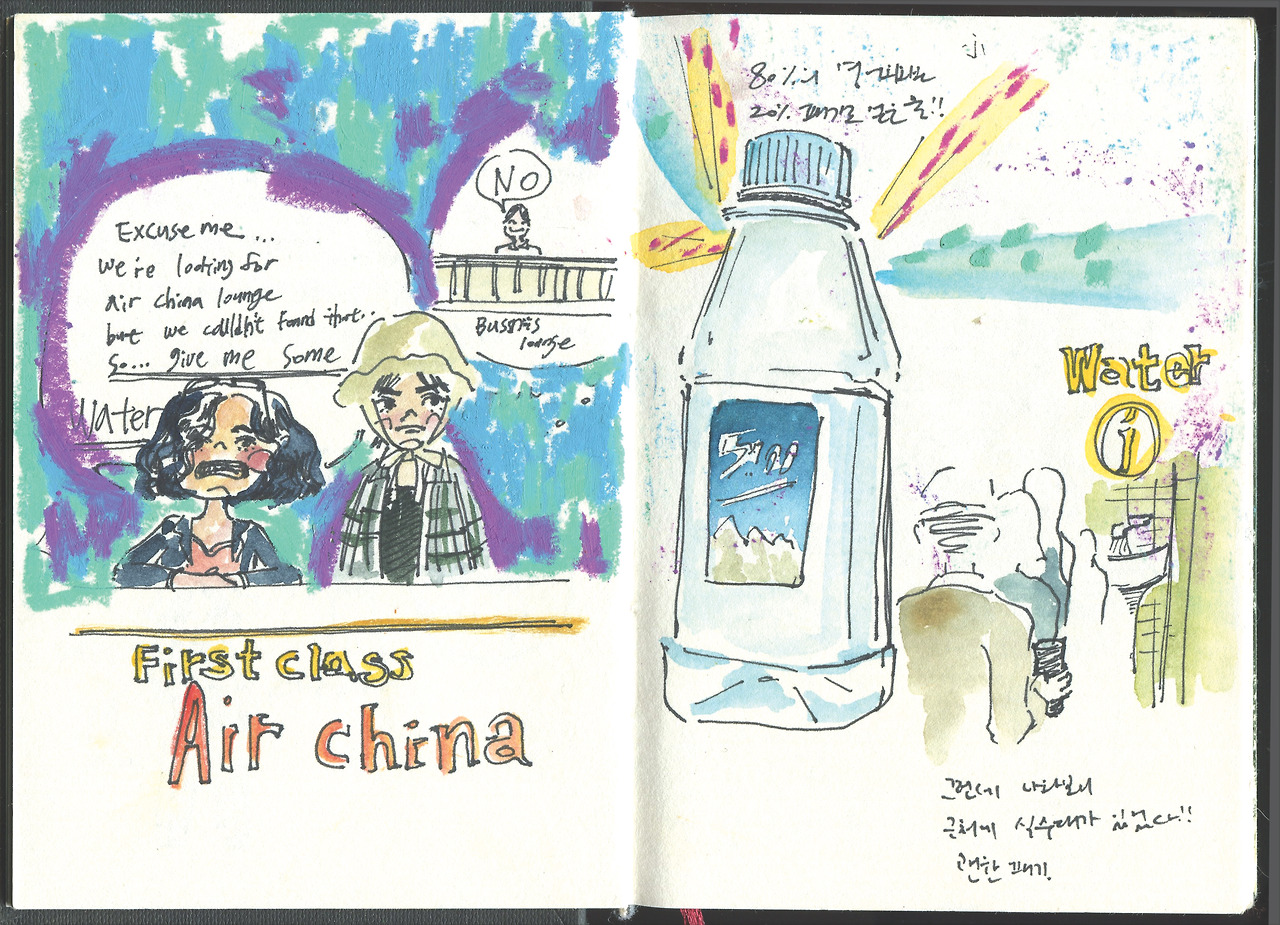 Excuse me ...
We're looking for
Air china lounge
but we couldn't found that..
So... give me some
Water
NO
Busnis
lounge
First class
Air china
80%의
20% 패기로 얻은 물!!
Water
i
그런데 나와보니
근처에 식수대가 있었다!!
괜한 패기.